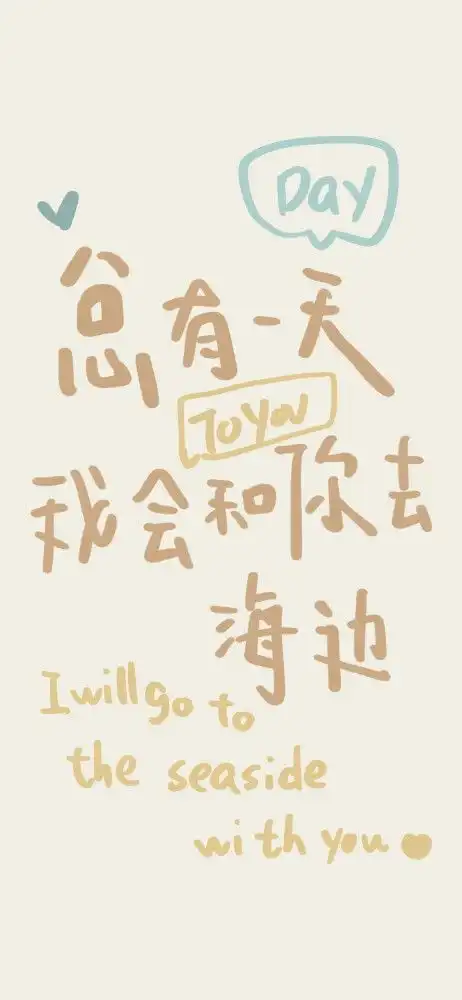 Day
总有一天
To You
我会和你去
海边
I will go to
the seaside
with you